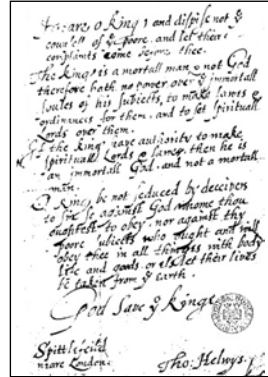 Heare o King, and dispise not ye
counsell of ye poore, and let their
complaints come before thee.
The king is a mortall man, & not God
therefore hath no power over ye immortall
soules of his subiects, to make lawes &
ordinances for them, and to set spirituall
Lords over them.
If the king have authority to make
spirituall Lords & lawes, then he is
an immortall God, and not a mortall
man.
O king, be not seduced by deceivers
to sin so against God whome thou
oughtest to obey, nor against thy
poore subiects who ought and will
obey thee in all things with body
life and goods, or els let their lives
be taken from ye earth.
God Save ye Kinge
Spittlefeild
neare London.
Tho: Helwys.